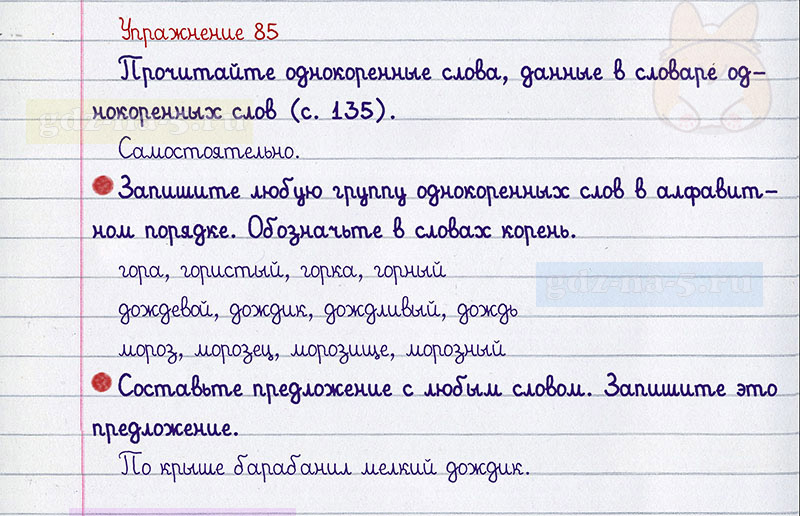 Упражнение 85
Прочитайте однокоренные слова, данные в словаре од-
нокоренных слов (с. 135).
gdz-na-5.ru
Самостоятельно.
Запишите любую группу однокоренных слов в алфавит-
ном порядке. Обозначьте в словах корень.
гора, гористый, горка, горный
gdz-na-5.ru
дождевой, дождик, дождливый, дождь
мороз, морозец, морозище, морозный
Составьте предложение с любым словом. Запишите это
предложение.
По крыше барабанил мелкий дождик.